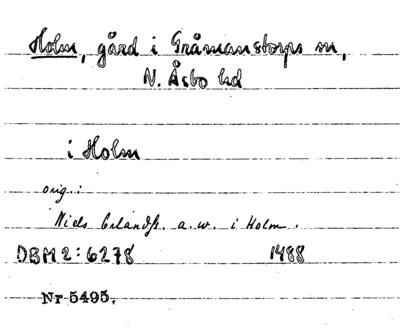 Holm, gård i Gråmanstorps sn,
N. Åsbo hd
i Holm
orig.:
Niels Erlandss. a.w. i Holm.
DBM 2:6278 1488
Nr 5495.